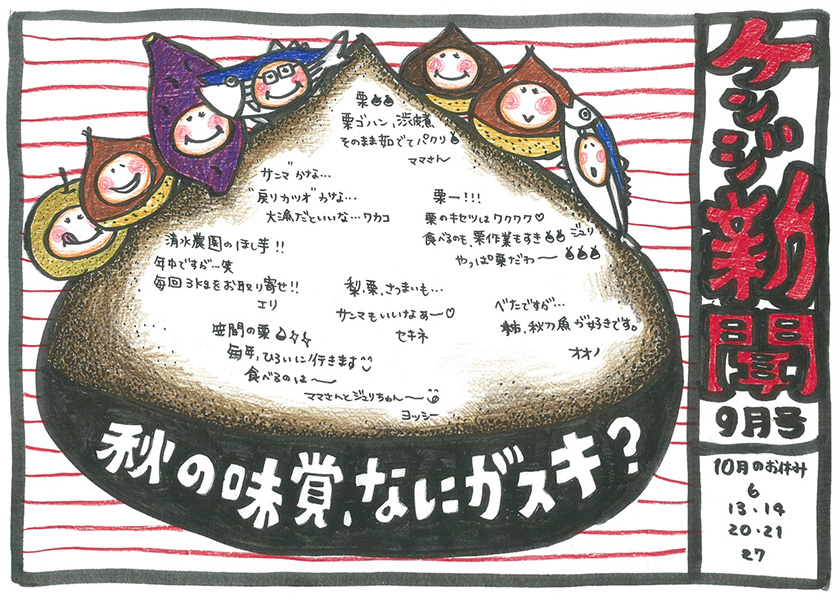 ケンジ新聞
9月号
10月のお休み
6
13・14
20・21
27
栗
栗ゴハン、渋皮煮
そのまま茹でてパクリ
ママさん
サンマかな…
戻りカツオかな…
大漁だといいな…ワカコ
栗ー!!!
栗のキセツはワクワク♡
食べるのも、栗作業もすき ジュリ
やっぱ栗だわ〜
清水農園のほし芋!!
年中ですが…笑
毎回3kgをお取り寄せ!!
エリ
梨、栗、さつまいも…
サンマもいいなぁー♡
セキネ
べたですが…
柿、秋刀魚が好きです。
オオノ
笠間の栗
毎年、ひろいに行きます
食べるのは〜
ママさんとジュリちゅん〜
ヨッシー
秋の味覚、なにガスキ?